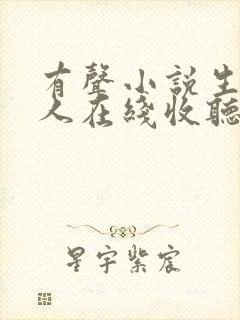 有聲小說生
人在綫收聽
星宇紫宸